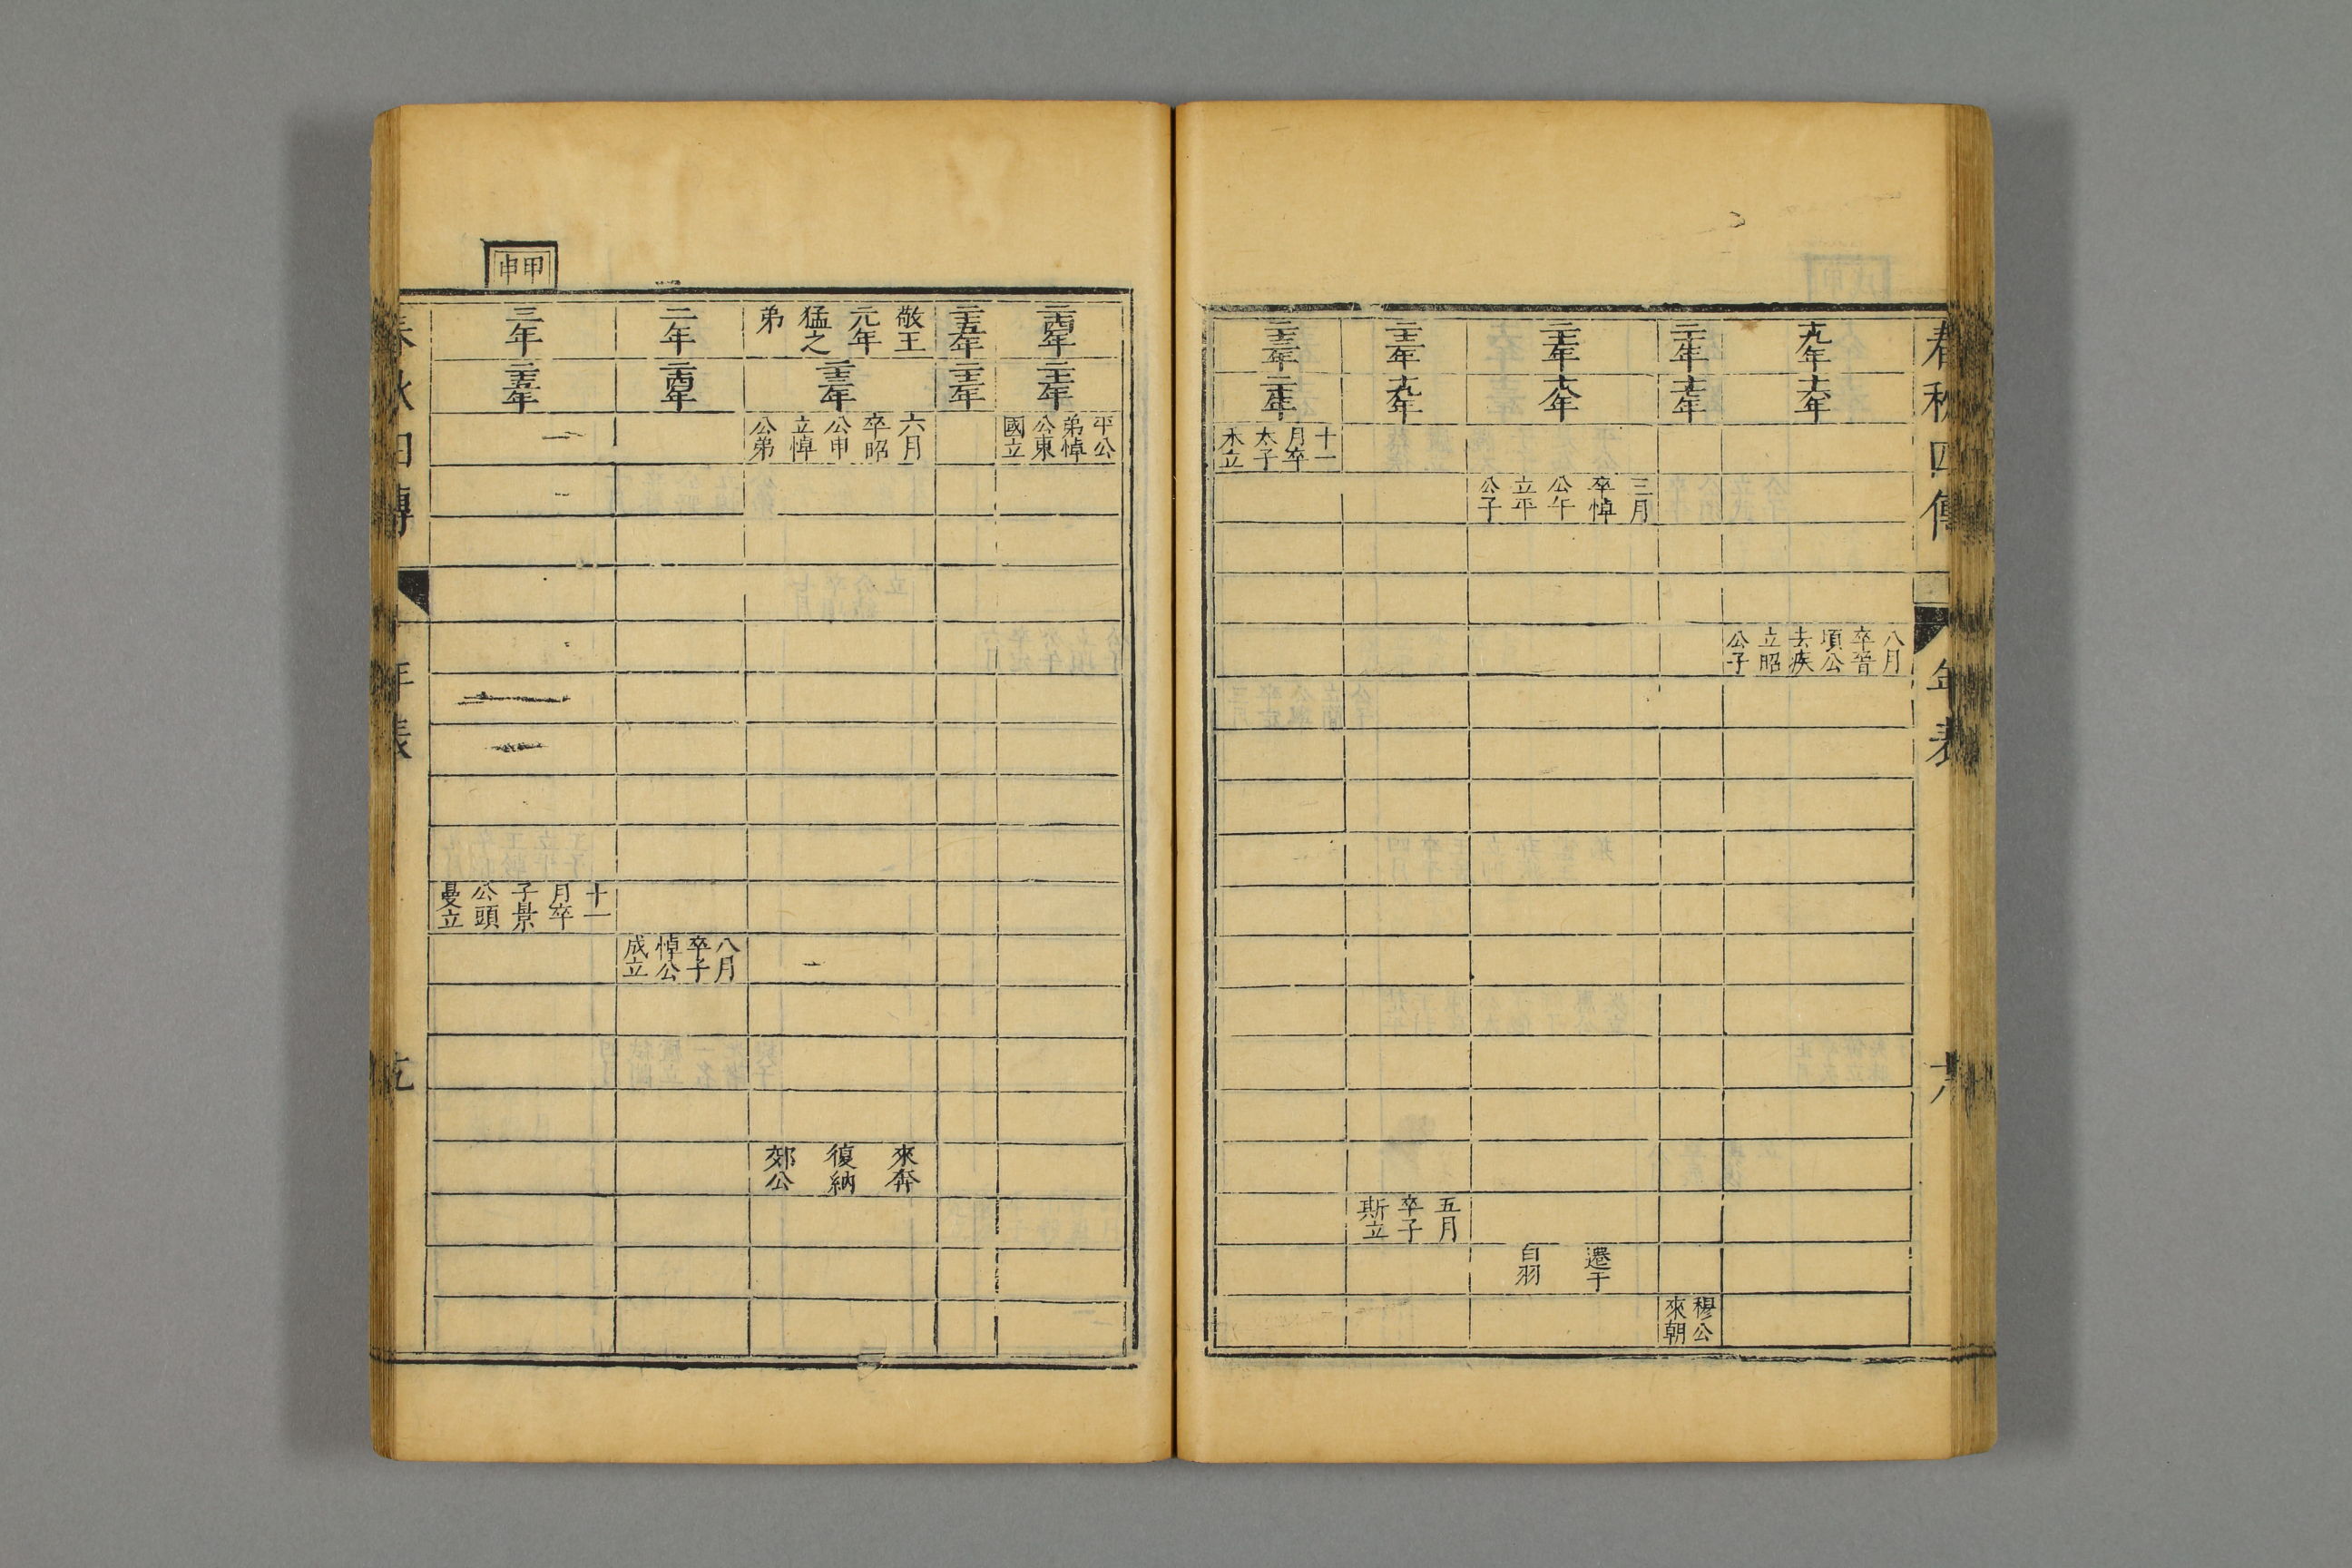 春秋四傳
年表
十九年
十六年
八月
卒晉
頃公
去疾
立昭
公子
二十年
十七年
穆公
來朝
二十一年
十八年
三月
卒悼
公午
立平
公子
遷于
白羽
二十二年
十九年
五月
卒子
斯立
二十三年
二十年
十一
月卒
太子
木立
二十四年
二十一年
平公
弟悼
公東
國立
二十五年
二十二年
敬王
元年
猛之
弟
二十三年
六月
卒昭
公申
立悼
公弟
來奔
復納
郊公
二年
二十四年
八月
卒子
悼公
成立
甲申
三年
二十五年
十一
月卒
子景
公頭
曼立
春秋四傳
年表